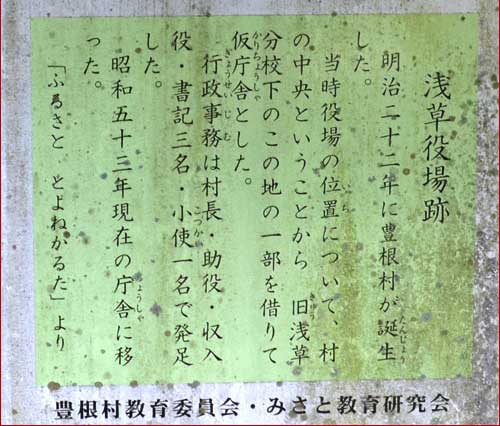 浅草役場跡
明治二十二年に豊根村が誕生
した。
当時役場の位置について、村
の中央ということから 旧浅草
分校下のこの地の一部を借りて
仮庁舎とした。
行政事務は村長・助役・収入
役・書記三名・小使一名で発足
した。
昭和五十三年現在の庁舎に移
った。
「ふるさと とよねかるた」より
豊根村教育委員会・みさと教育研究会